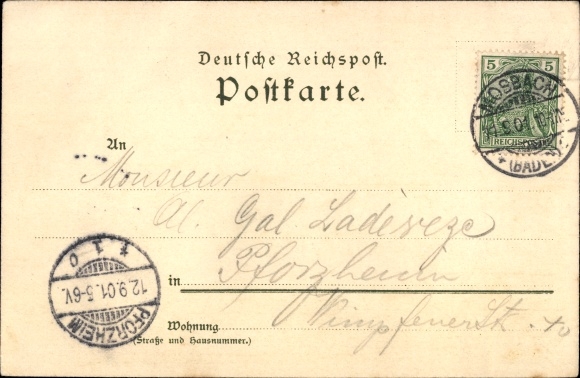 Deutsche Reichspost.
Postkarte.
5 5
REICHSPOST
MOSBACH
.9.01
(BADEN)
An
Monsieur
Al. Gal. Ladevèze
in Pforzheim
Wimpfenerstr. 10
Wohnung
(Straße und Hausnummer.)
PFORZHEIM
12.9.01.5-6V.
* 1 o